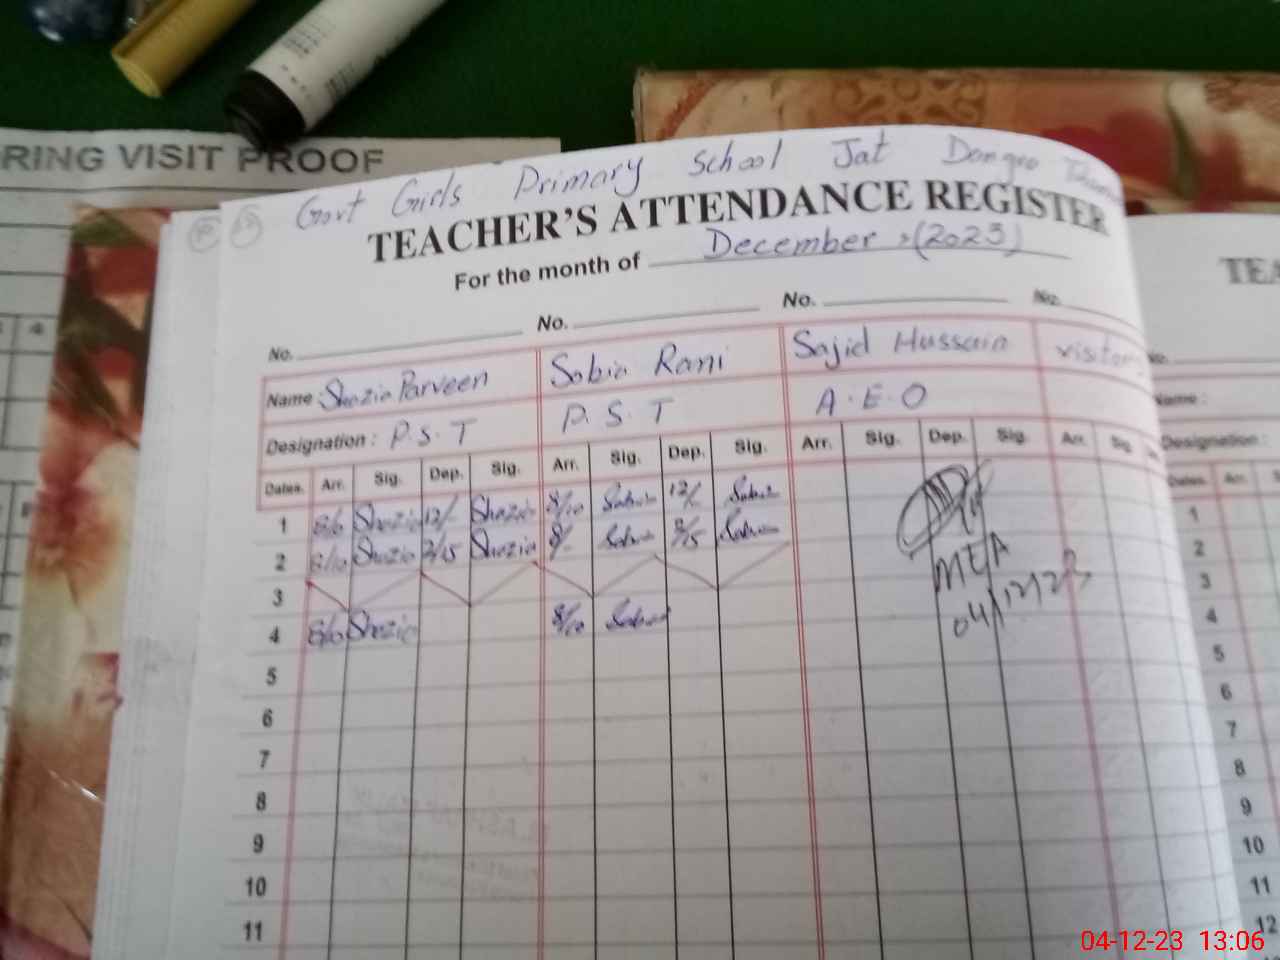 RING VISIT PROOF
Govt Girls Primary School Jat Dongro
TEACHER'S ATTENDANCE REGISTER
For the month of December, (2023)
No. No. No. No.
Name: Shazia Parveen Sabia Rani Sajid Hussain visitor
Designation: P.S.T P.S.T A.E.O
Dates. Arr. Sig. Dep. Sig. Arr. Sig. Dep. Sig. Arr. Sig. Dep. Sig. Arr. Sig.
1 8/10 Shazia 12/- Shazia 8/10 Sabia 12/- Sabia
2 8/10 Shazia 2/15 Shazia 8/- Sabia 2/15 Sabia
3
4 8/10 Shazia 8/10 Sabia
MEA
04/12/23
5
6
7
8
9
10
11
4
TEA
No.
Name :
Designation :
Dates. Arr.
1
2
3
4
5
6
7
8
9
10
11
12
04-12-23 13:06